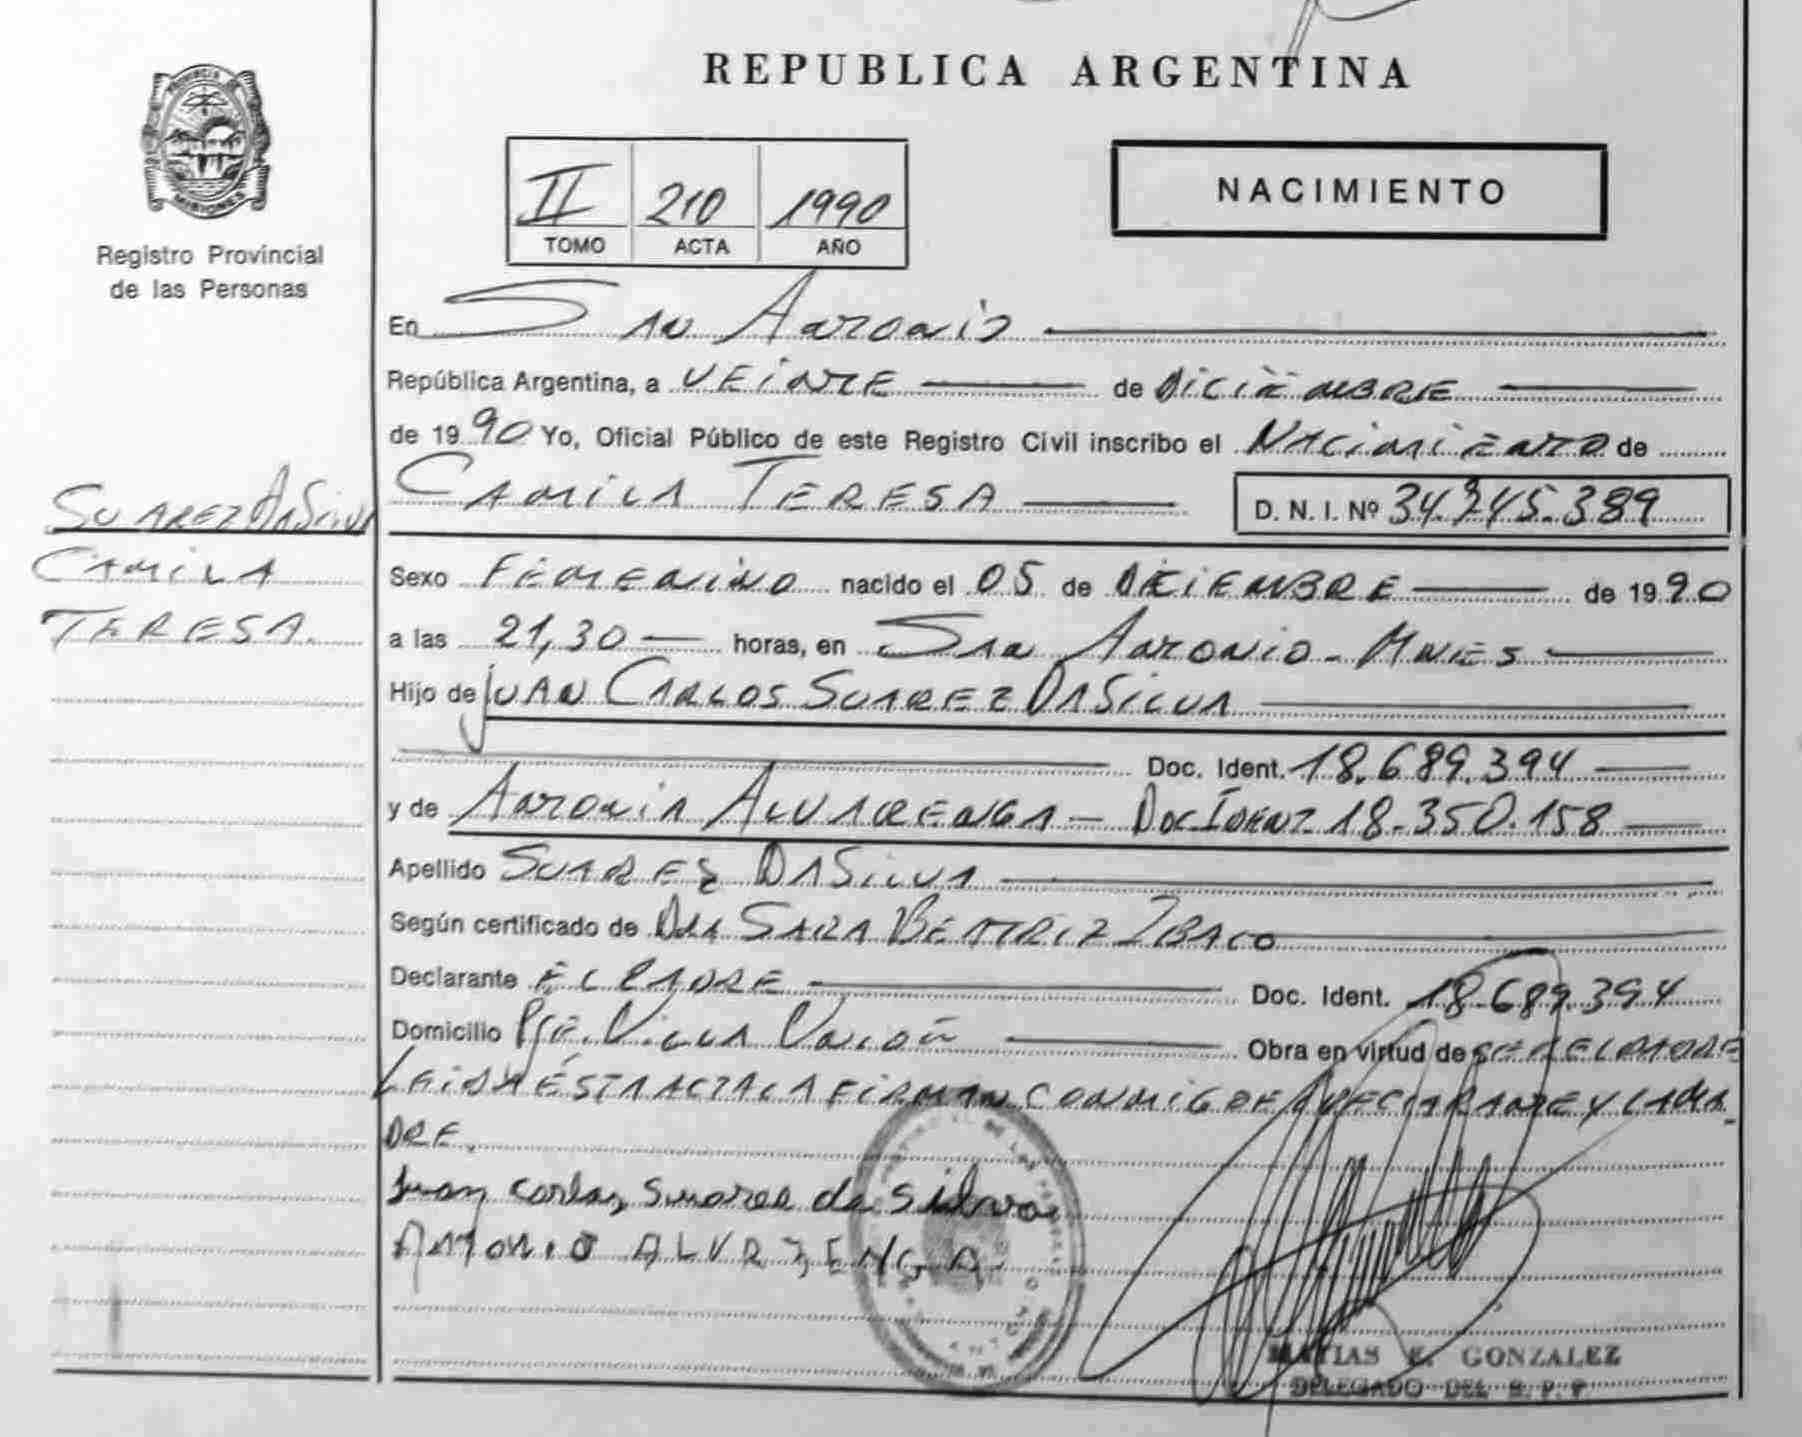 REPUBLICA ARGENTINA
PROVINCIA
MISIONES
Registro Provincial
de las Personas
II 210 1990
TOMO ACTA AÑO
NACIMIENTO
En San Antonio
República Argentina, a VEINTE de DICIEMBRE
de 1990 Yo, Oficial Público de este Registro Civil inscribo el NACIMIENTO de
CAMILA TERESA
D. N. I. Nº 34.745.389
SUAREZ DASILVA
CAMILA
TERESA.
Sexo FEMENINO nacido el 05 de DICIEMBRE de 1990
a las 21,30 horas, en San Antonio - Mnes
Hijo de JUAN CARLOS SUAREZ DASILVA
Doc. Ident. 18.689.394
y de ANTONIA ALVARENGA - Doc Ident. 18.350.158
Apellido SUAREZ DASILVA
Según certificado de Dra SARA BEATRIZ
Declarante EL PADRE Doc. Ident. 18.689.394
Domicilio Pje. VILLA UNION Obra en virtud de
LEIDA ESTA ACTA LA FIRMAN CONMIGO EL DECLARANTE Y LA MA-
DRE.
Juan carlos suares da silva
ANTONIO
MATIAS E. GONZALEZ
DELEGADO DEL R. P. P.